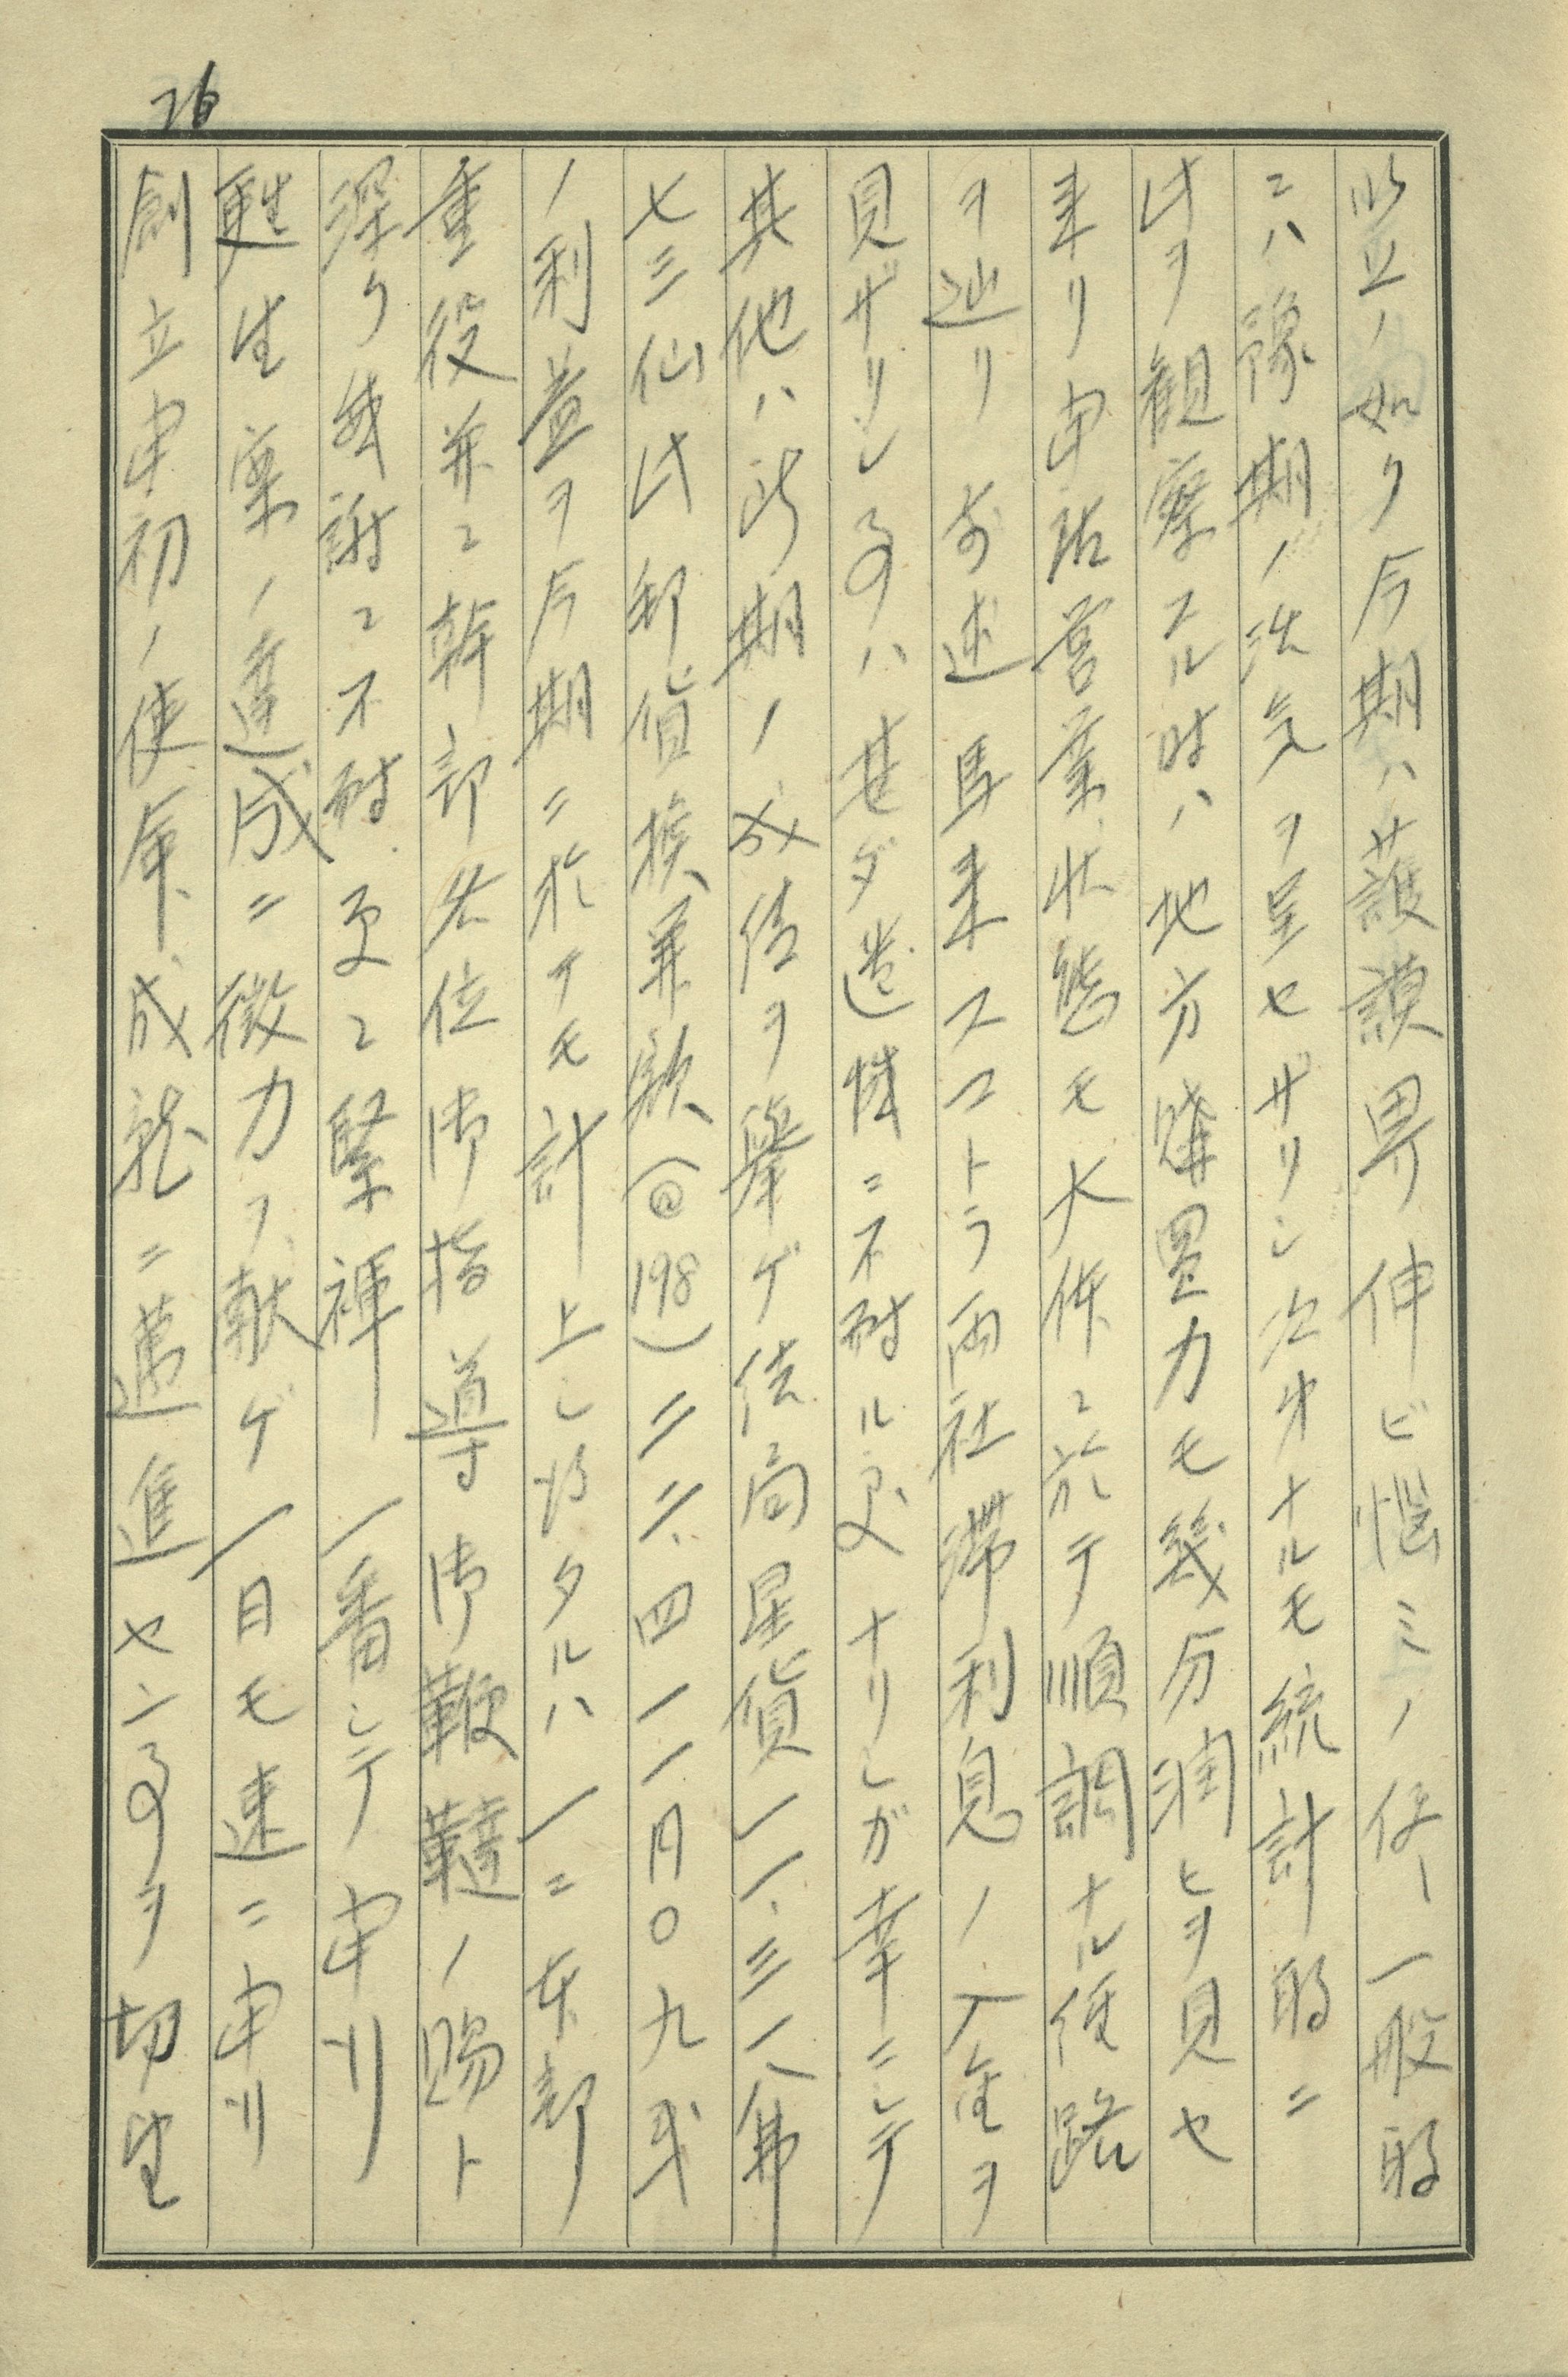 26
此ノ如ク今期ハ護謨界伸ビ悩ミノ侭一般的
ニハ豫期ノ活気ヲ呈セザリシ次オナルモ統計的ニ
此ヲ観察スル時ハ地方購買力モ幾分潤ヒヲ見セ
来リ申訳営業状態モ大体ニ於テ順調ナル径路
ヲ辿リ前述馬来スマトラ両社滞利息ノ入金ヲ
見ザリシ事ハ甚ダ遺憾ニ不耐ル処ナリシガ幸ニシテ
其他ハ此期ノ成績ヲ擧ゲ結局星貨一一、三一八弗
七三仙此邦貨換算額(@198)二二、四一一円〇九戋
ノ利益ヲ今期ニ於イテモ計上シ得タルハ一ニ本部
重役并ニ幹部各位御指導御鞭韃ノ賜ト
深ク感謝ニ不耐更ニ緊褌一番シテ申リ
更生案ノ達成ニ微力ヲ献ゲ一日モ速ニ申リ
創立申初ノ使命成就ニ邁進セン事ヲ切望